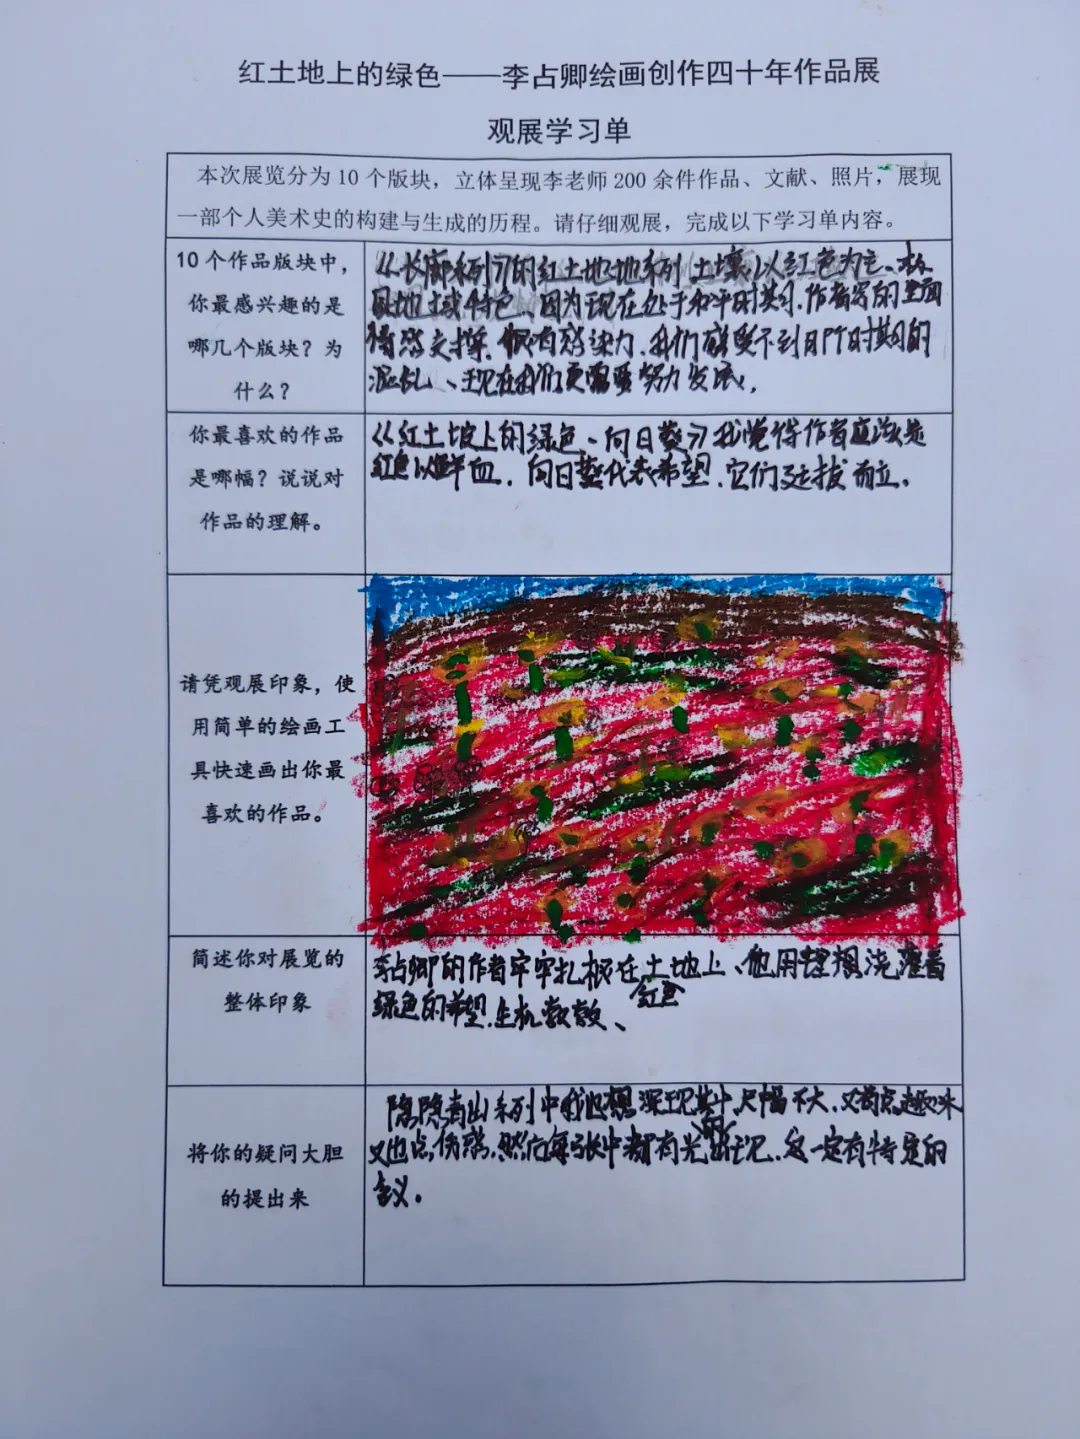 红土地上的绿色——李占卿绘画创作四十年作品展
观展学习单
本次展览分为10个版块，立体呈现李老师200余件作品、文献、照片，展现
一部个人美术史的构建与生成的历程。请仔细观展，完成以下学习单内容。
10个作品版块中，
你最感兴趣的是
哪几个版块？为
什么？
《长廊系列》的红土地地系列土壤以红色为主、
地域特色、因为现在处于和平时期，作者写的
情感支撑，很有感染力，我们感受不到 时期的
混乱、现在我们更需要努力发展，
你最喜欢的作品
是哪幅？说说对
作品的理解。
《红土坡上的绿色、向日葵》我觉得作者应该是
红色以鲜血，向日葵代表希望，它们廷拔而立。
请凭观展印象，使
用简单的绘画工
具快速画出你最
喜欢的作品。
简述你对展览的
整体印象
李占卿的作者牢牢扎根在红色土地上、他用理想浇灌着
绿色的希望，生机数数、
将你的疑问大胆
的提出来
隐隐青山系列中我 尺幅不大，又有点趣味
又也点伤感，然后每张中都有光 出现，这一定有特定的
含义。